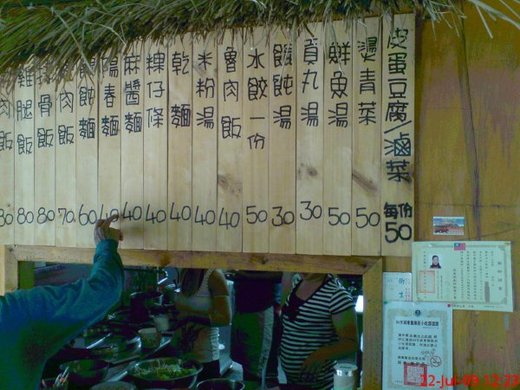 皮蛋豆腐/滷菜 每份50
燙青菜 50
鮮魚湯 50
貢丸湯 30
餛飩湯 30
水餃一份 50
魯肉飯 40
米粉湯 40
乾麵 40
粿仔條 40
麻醬麵 40
陽春麵 40
餛飩麵 60
肉飯 70
排骨飯 80
雞腿飯 80
肉飯 80